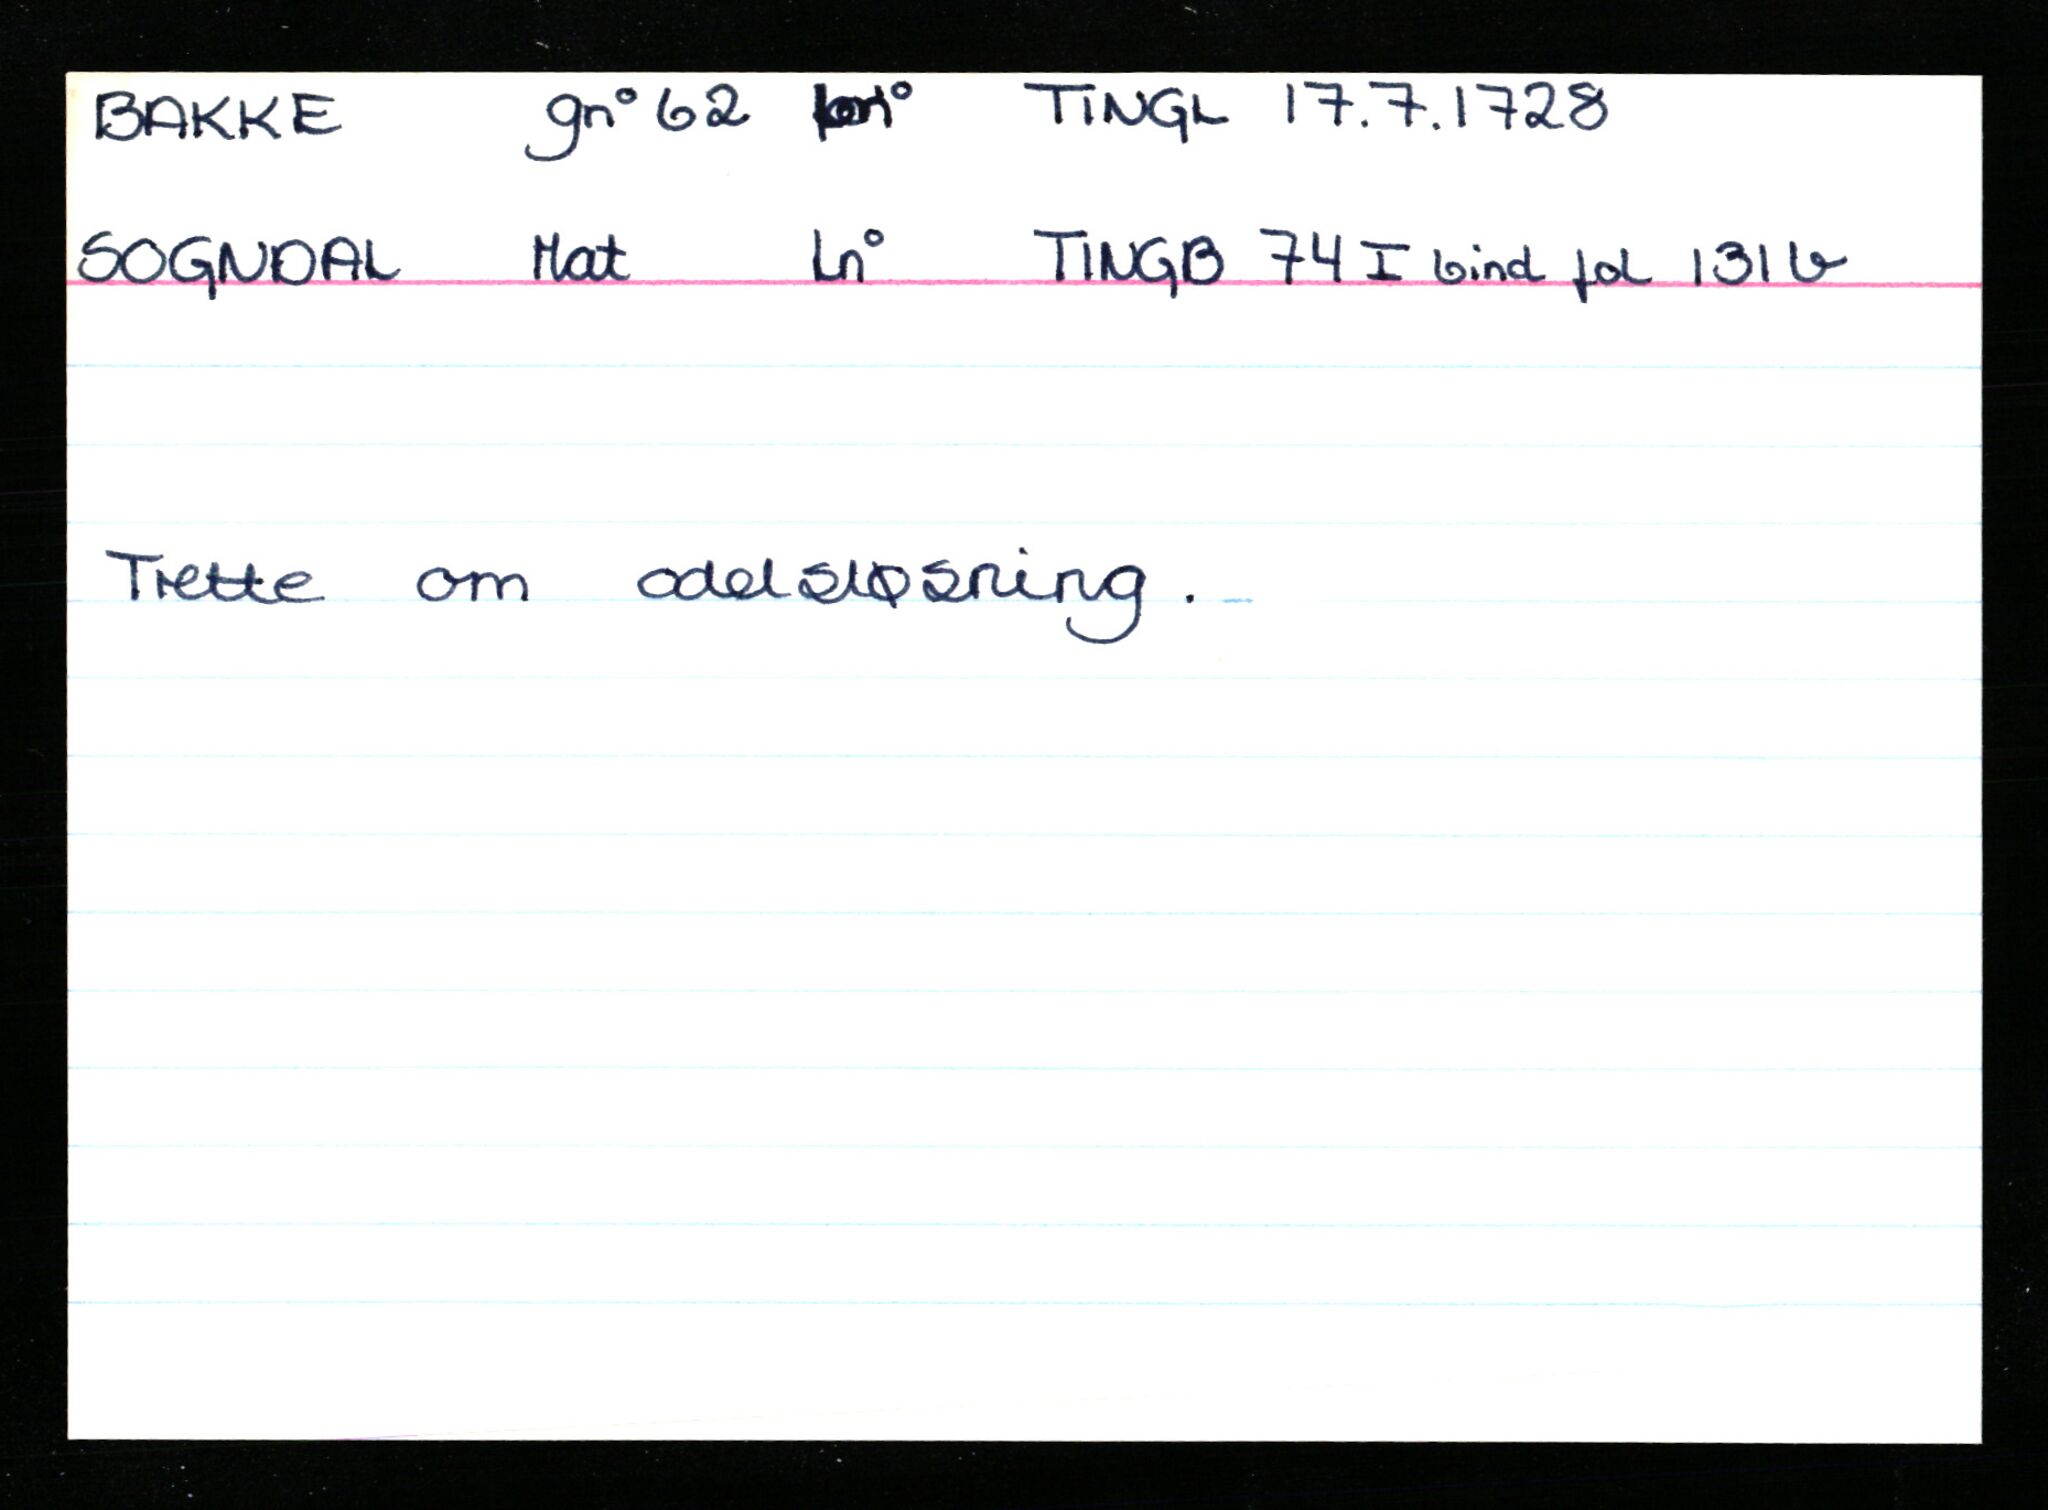 BAKKE gn° 62 bn° TINGL 17.7.1728
SOGNDAL Mat Ln° TINGB 74 I bind fol 131 b
Trette om odelsløsning.